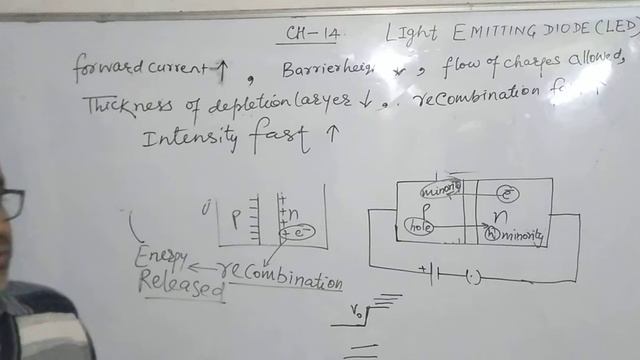 CH-14. LIght EMITTING DIODE (LED)
forward current ↑, Barrier ↓, flow of charges allowed,
Thickness of depletion laryer ↓, recombination
Intensity fast ↑
P n
e-
Energy Released ← recombination
minority e-
P n
hole h minority
+ (.)
V₀